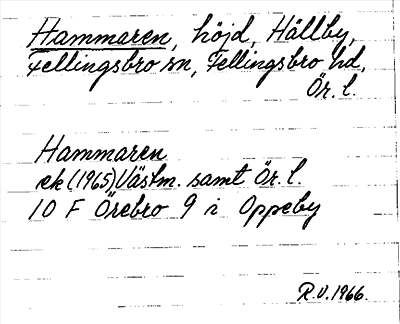 Hammaren, höjd, Hällby,
Fellingsbro sn, Fellingsbro hd,
Ör. l.
Hammaren
ek (1965) Västm. samt Ör. l.
10 F Örebro 9 i Oppeby
R.V. 1966.